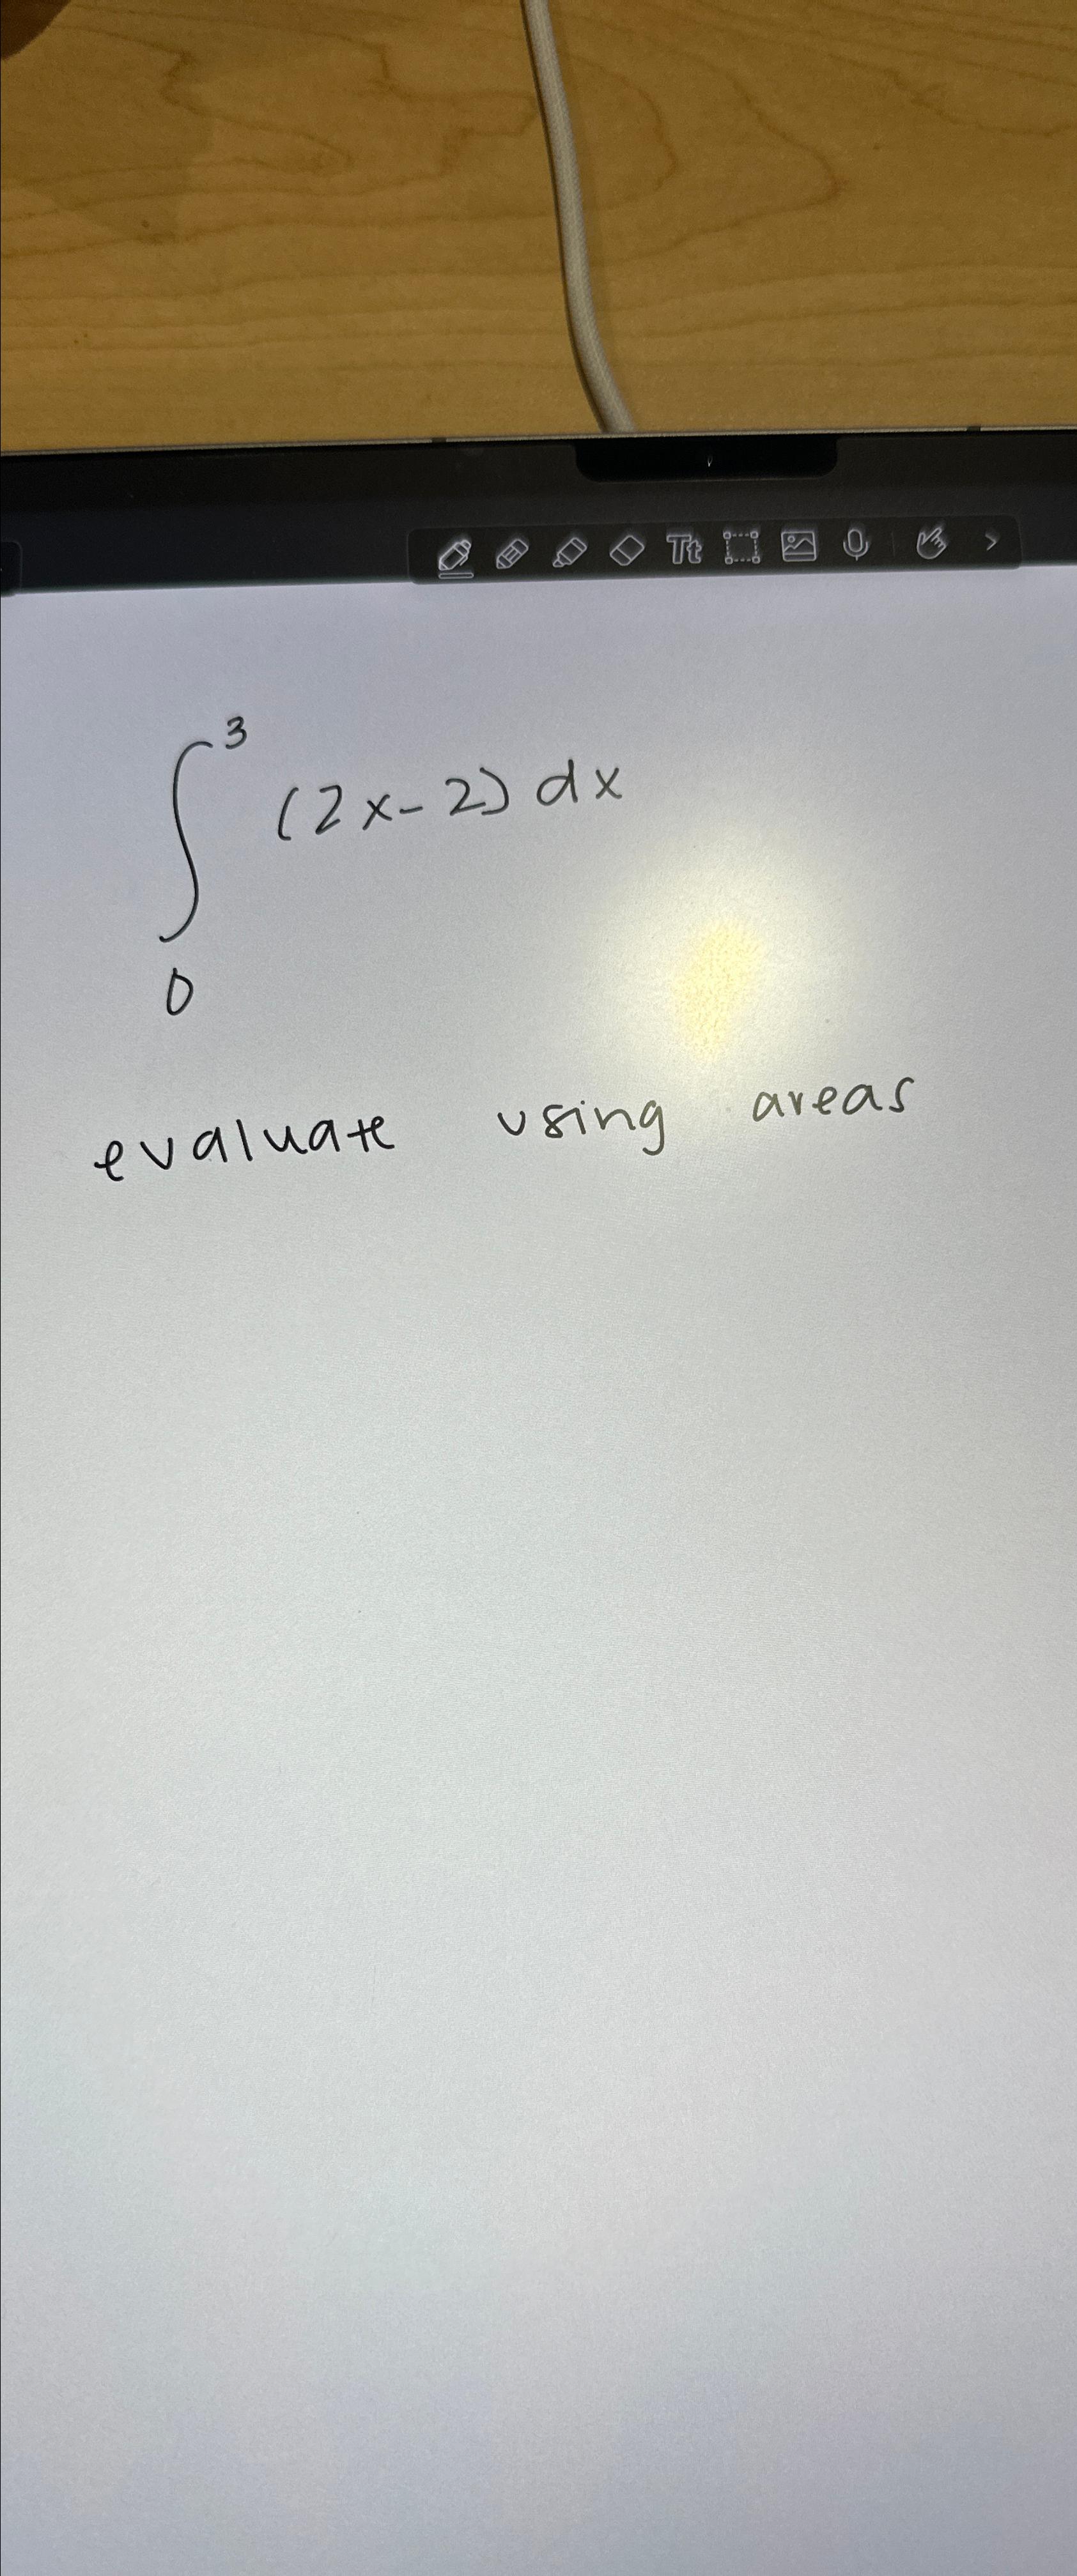 Tt
∫₀³ (2x-2) dx
evaluate using areas